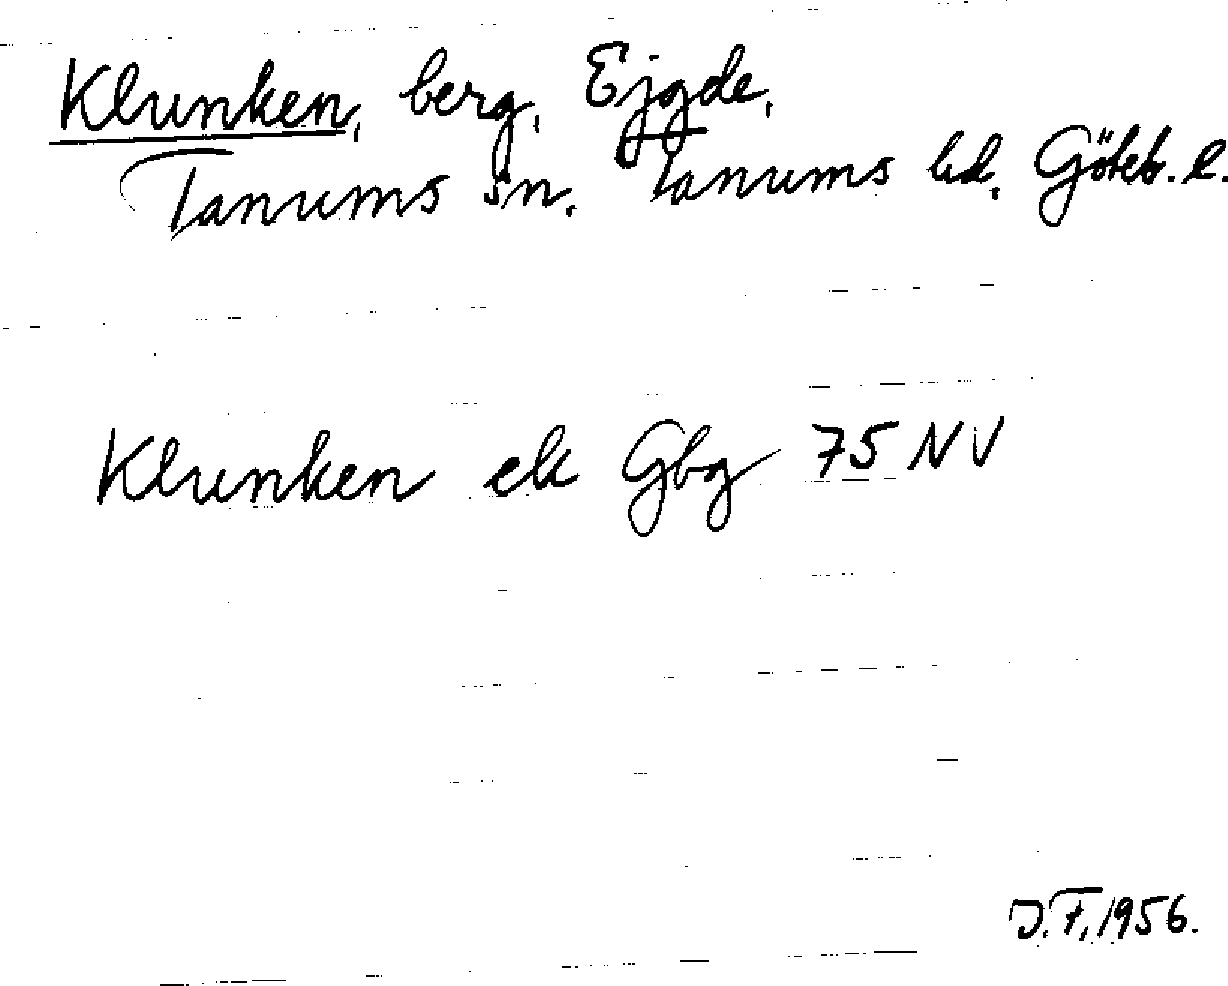 Klunken, berg, Ejgde,
Tanums sn. Tanums hd. Göteb. l.
Klunken ek Gbg 75 NV
J.F. 1956.